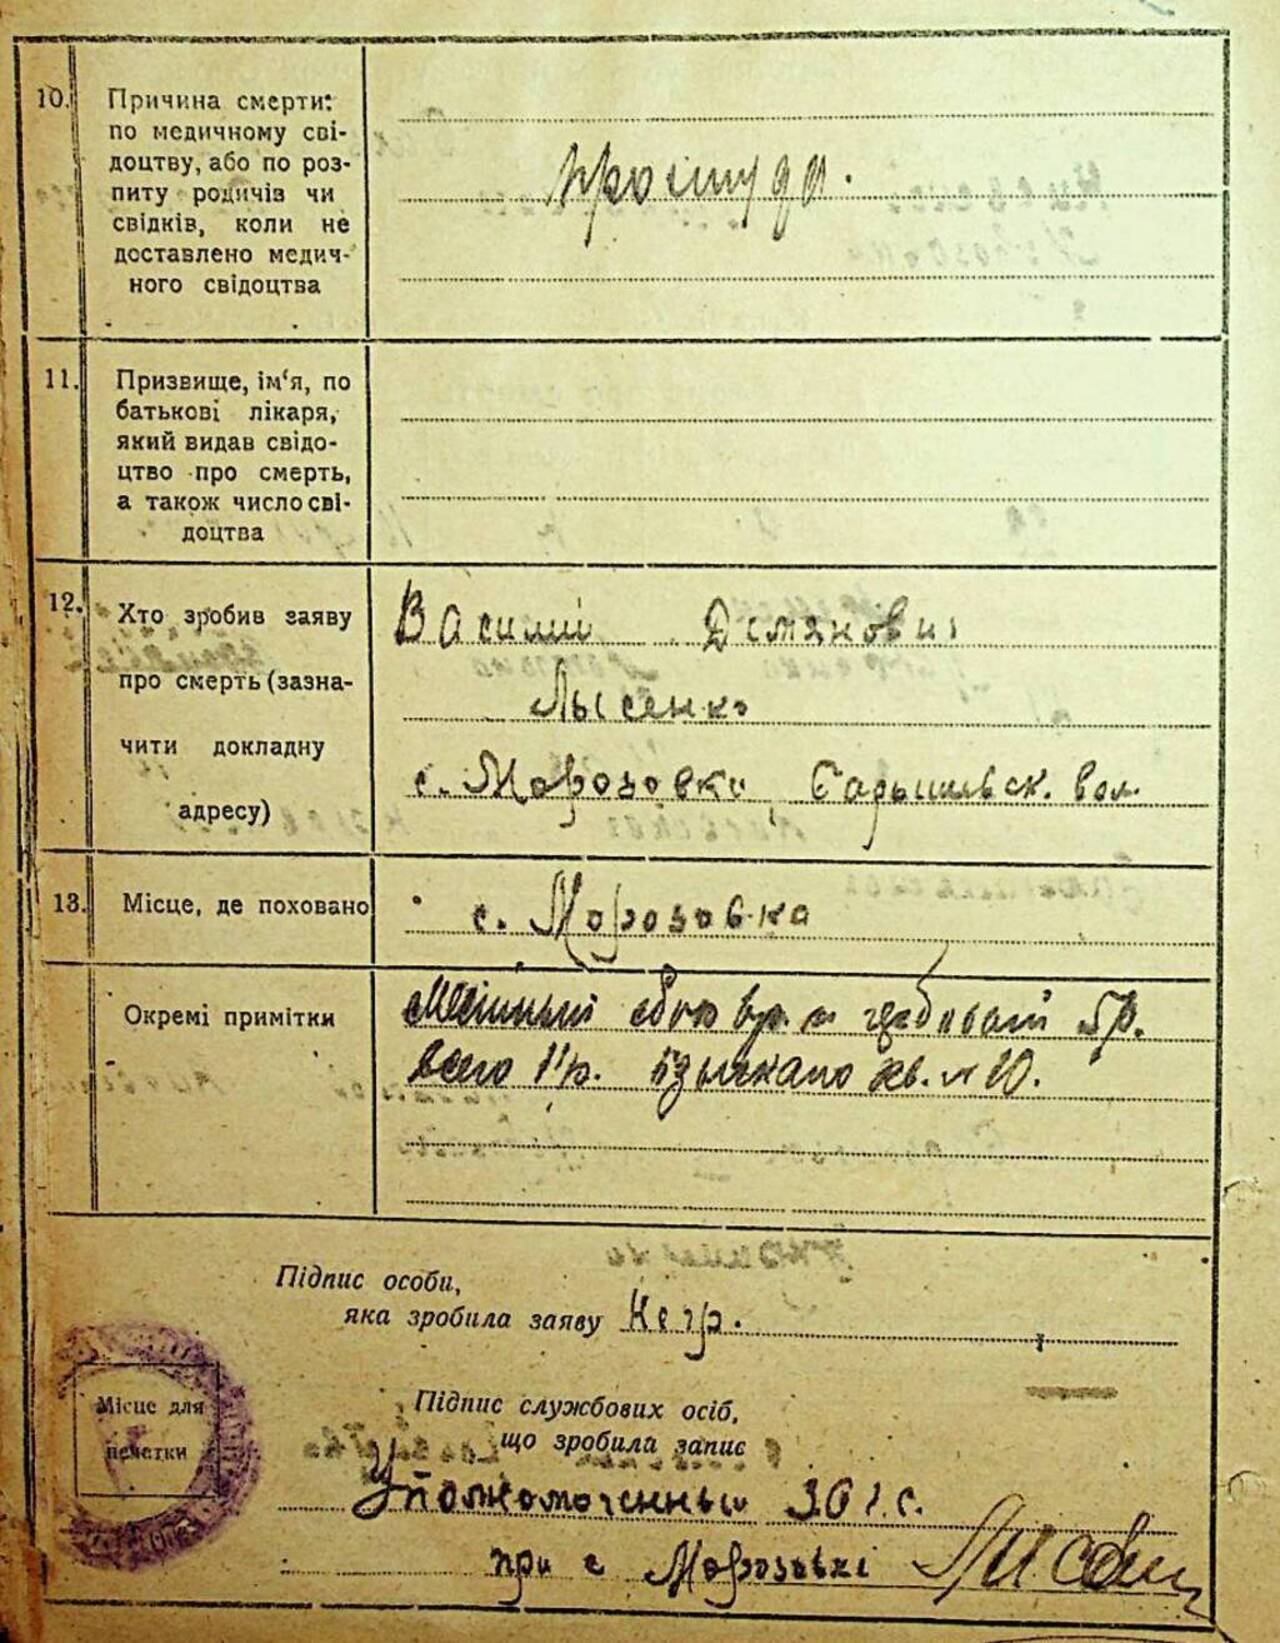 10. Причина смерти:
по медичному сві-
доцтву, або по роз-
питу родичів чи
свідків, коли не
доставлено медич-
ного свідоцтва
простуда.
11. Призвище, ім‘я, по
батькові лікаря,
який видав свідо-
цтво про смерть,
а також число сві-
доцтва
12. Хто зробив заяву
про смерть (зазна-
чити докладну
адресу)
Василий Демянович
Лысенко
с. Морозовки, Барышевск. вол.
13. Місце, де поховано
с. Морозовка
Окремі примітки
Местный сбор
всего 11 р. взыскано кв. № 10.
Підпис особи,
яка зробила заяву Негр.
Місце для
печатки
Підпис службових осіб,
що зробила запис
Уполномоченный
при с Морозовкі